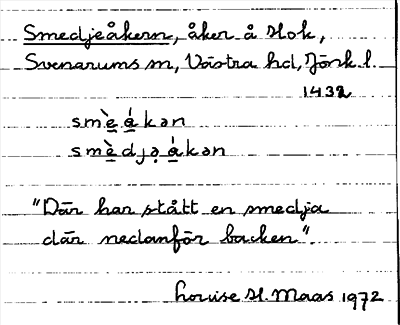 Smedjeåkern, åker å Stok,
Svenarums sn, Västra hd, Jönk. l.
1432
smè̱á̱kən
smè̱djə̣á̱kən
"Där har stått en smedja
där nedanför backen".
Louise H. Maas 1972